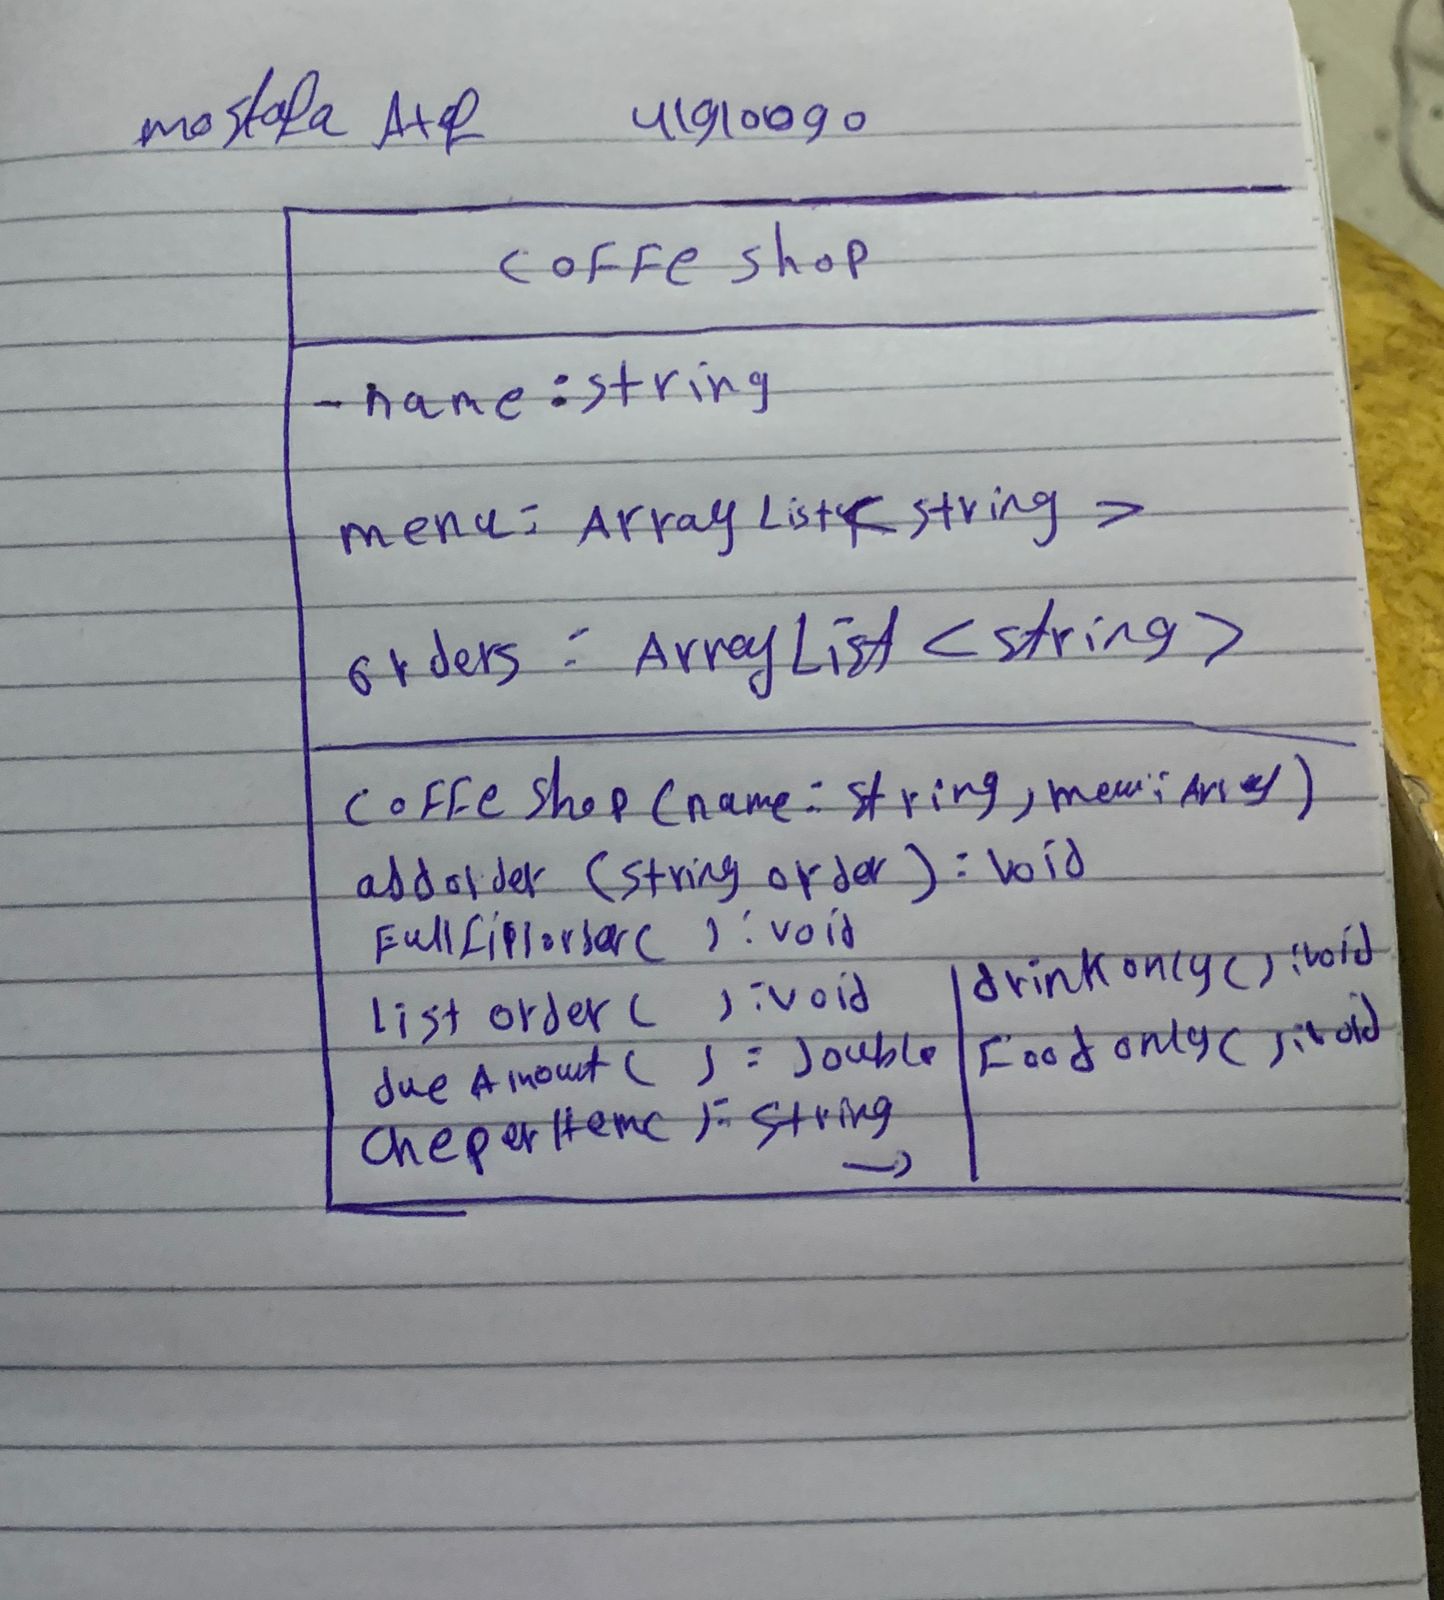 mostafa Atef 41910090
coffe shop
- name : string
menu : Array List < string >
orders : Array List < string >
coffe shop (name : string, menu : Array)
addorder (string order) : void
Fullfillorder( ) : void
List order ( ) : void
due Amount ( ) : Double
CheperItem( ) : string
→
drink only( ) : void
Food only( ) : void